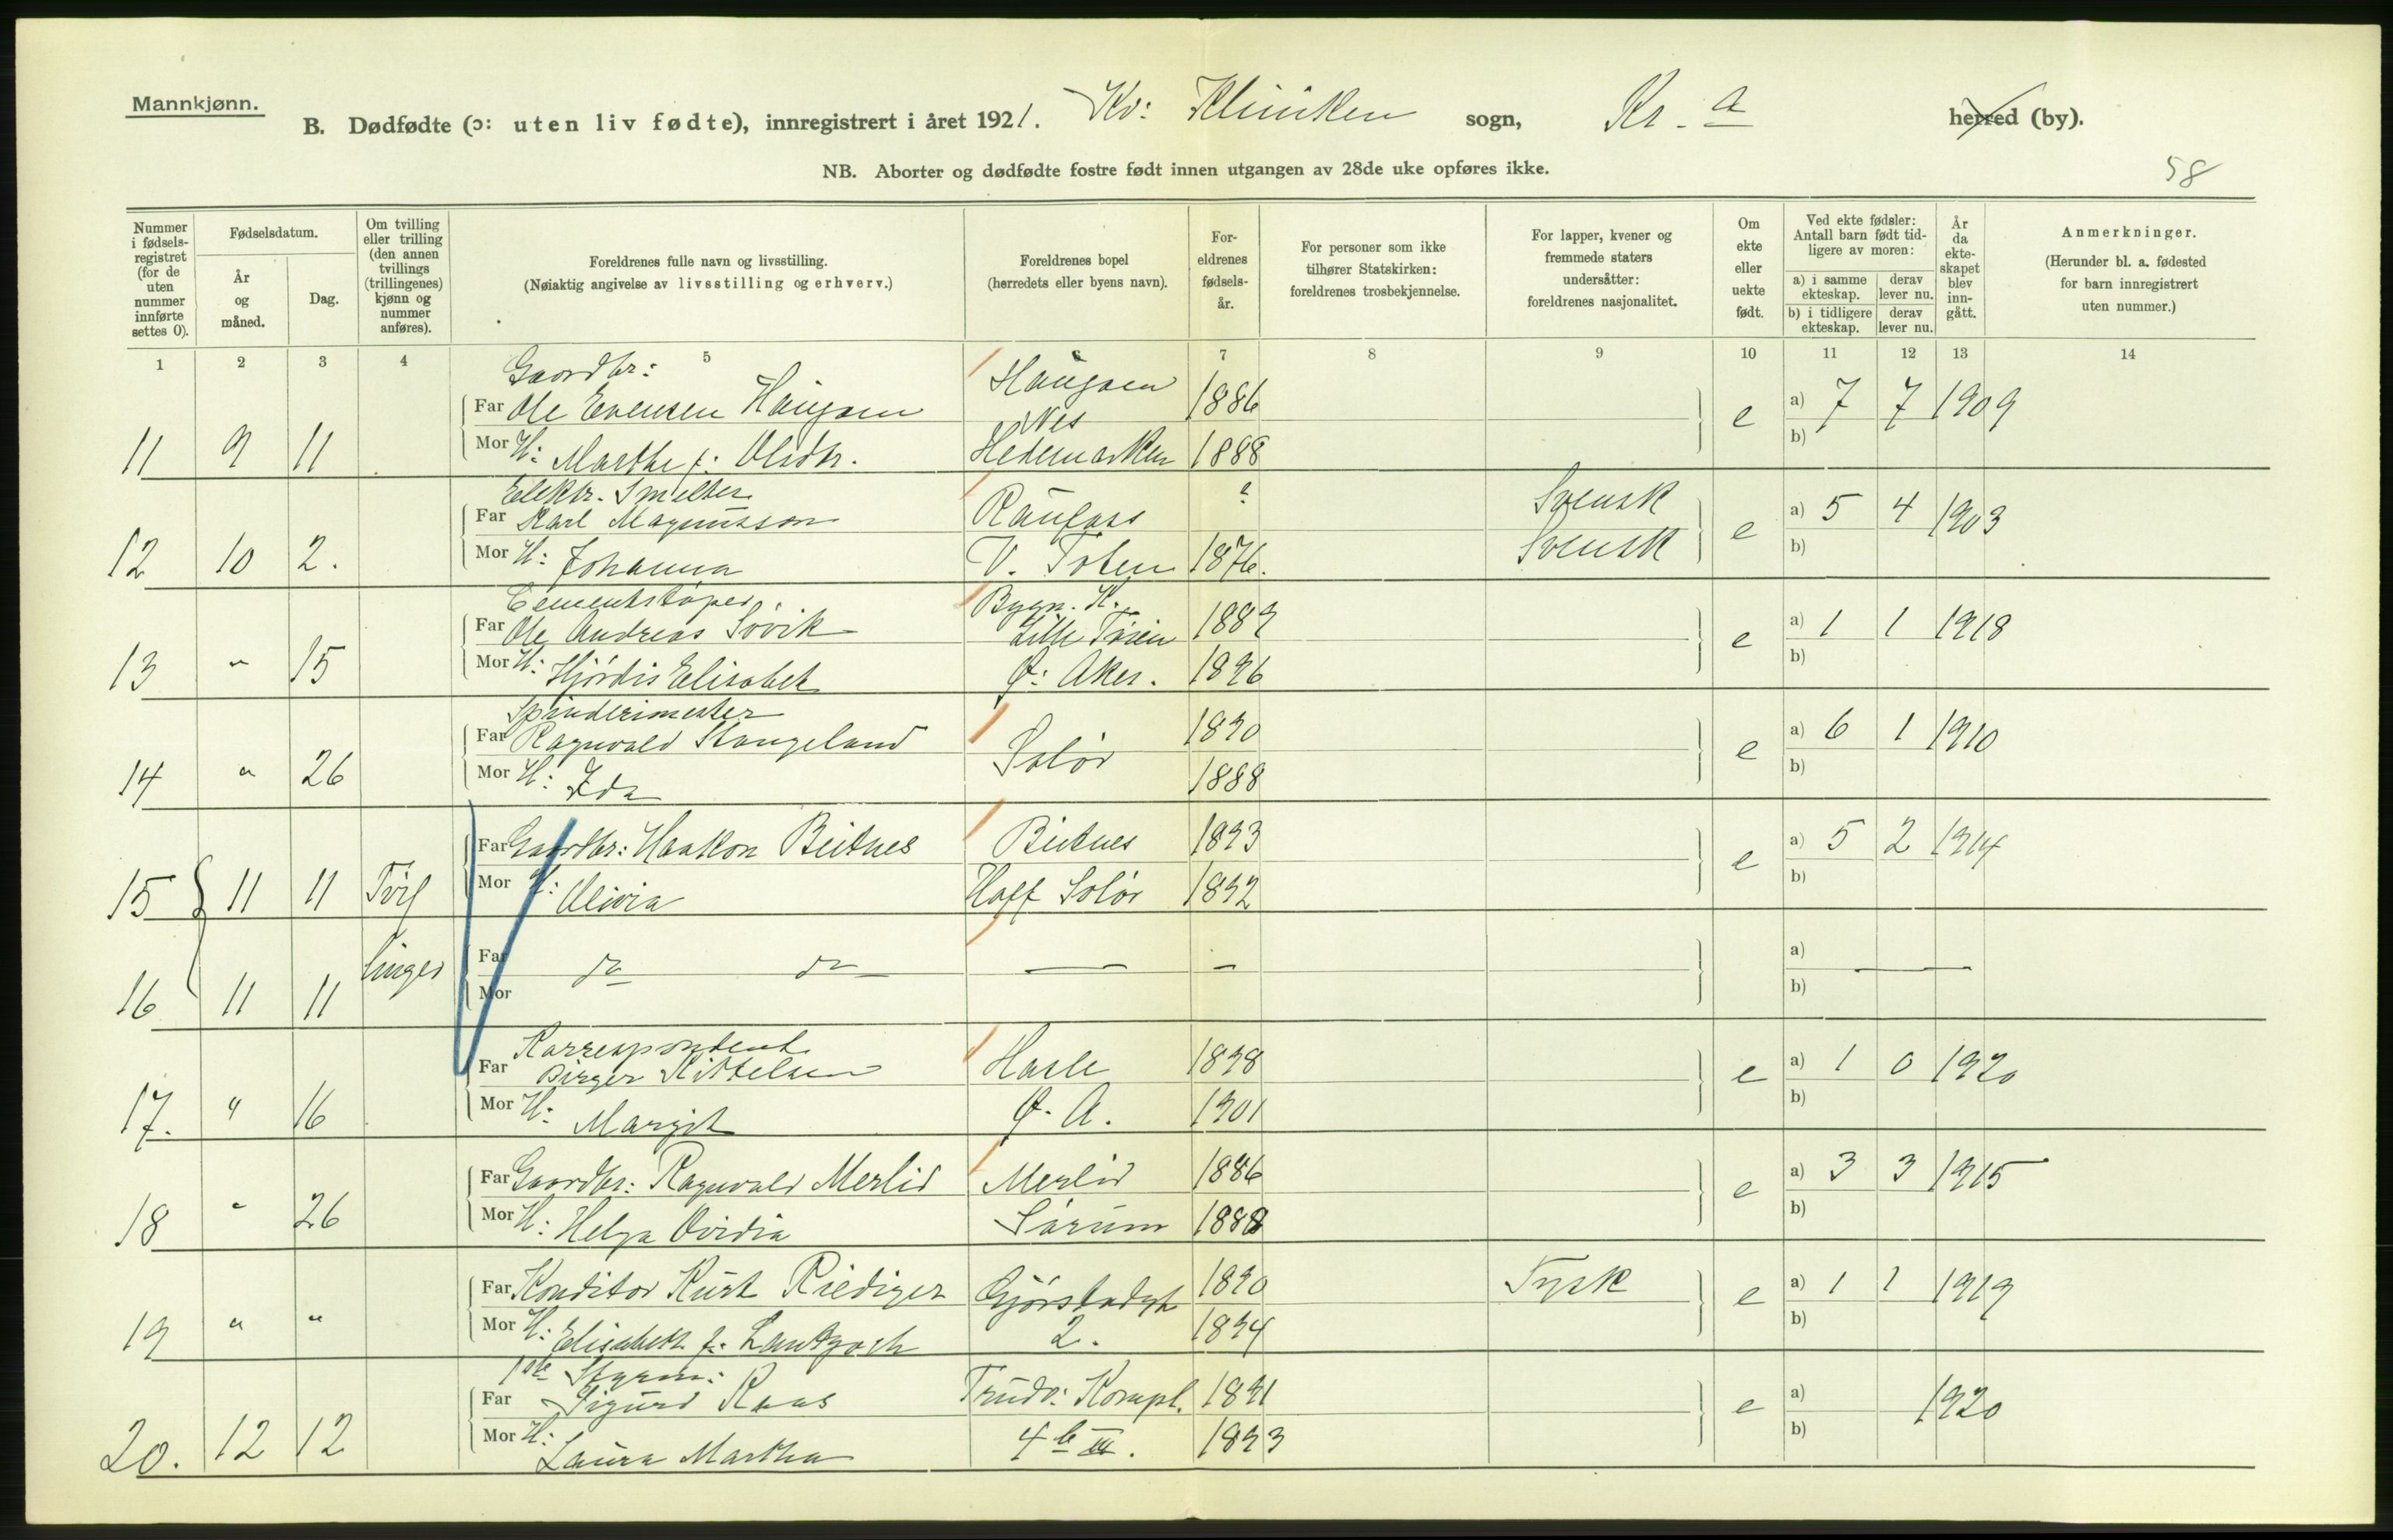 Mannkjønn.
B. Dødfødte (ɔ: uten liv fødte), innregistrert i året 1921. Kv: Kliniken sogn, Kr.a herred (by).
NB. Aborter og dødfødte fostre født innen utgangen av 28de uke opføres ikke.
58
Nummer i fødsels-registret (for de uten nummer innførte settes 0).
Fødselsdatum.
År og måned.
Dag.
Om tvilling eller trilling (den annen tvillings (trillingenes) kjønn og nummer anføres).
Foreldrenes fulle navn og livsstilling.
(Nøiaktig angivelse av livsstilling og erhverv.)
Foreldrenes bopel
(herredets eller byens navn).
For-eldrenes fødsels-år.
For personer som ikke tilhører Statskirken: foreldrenes trosbekjennelse.
For lapper, kvener og fremmede staters undersåtter: foreldrenes nasjonalitet.
Om ekte eller uekte født.
Ved ekte fødsler: Antall barn født tid-ligere av moren:
a) i samme ekteskap. derav lever nu.
b) i tidligere ekteskap. derav lever nu.
År da ekte-skapet blev inn-gått.
Anmerkninger.
(Herunder bl. a. fødested for barn innregistrert uten nummer.)
1 2 3 4 5 6 7 8 9 10 11 12 13 14
Gaardbr:
Far Ole Evensen Haugam Haugaen 1886 a) 7 7 1909
Nes
11 9 11 Mor H: Marthe f: Olsdtr. Hedemarken 1888 e b)
Elektr. Smelter
Far Karl Magnusson Raufoss ? Svensk a) 5 4 1903
12 10 2. Mor H: Johanna V. Toten 1876. Svensk e b)
Cementstøper Bygn. K.
Far Ole Andreas Sövik Lille Tøien 1889 a) 1 1 1918
13 " 15 Mor H: Hjördis Elisabet Ø: Aker. 1896 e b)
Spinderimester
Far Ragnvald Stangeland Solör 1890 a) 6 1 1910
14 " 26 Mor H: Ida 1888 e b)
Far Gaardbr: Haakon Butnes Butnes 1893 a) 5 2 1914
15 11 11 Tvil Mor H: Olivia Hoff Solör 1892 e b)
linger Far do do — — a) — —
16 11 11 Mor b)
Korrespondent
Far Birger Kittelsen Hasle 1898 a) 1 0 1920
17. " 16 Mor H: Margit Ø. A. 1901 e b)
Far Gaardbr: Ragnvald Merlid Merlid 1886 a) 3 3 1915
18 " 26 Mor H: Helga Ovidia Sørum 1888 e b)
Far Konditor Kurt Riediger 1890 Tysk a) 1 1 1919
19 " " Mor H: Elisabeth f. 2. 1894 e b)
1ste Styrm:
Far Sigurd Kaas Trudv: Kompl. 1891 a) 1920
20. 12 12 Mor H: Laura Martha 4 b III. 1893 e b)